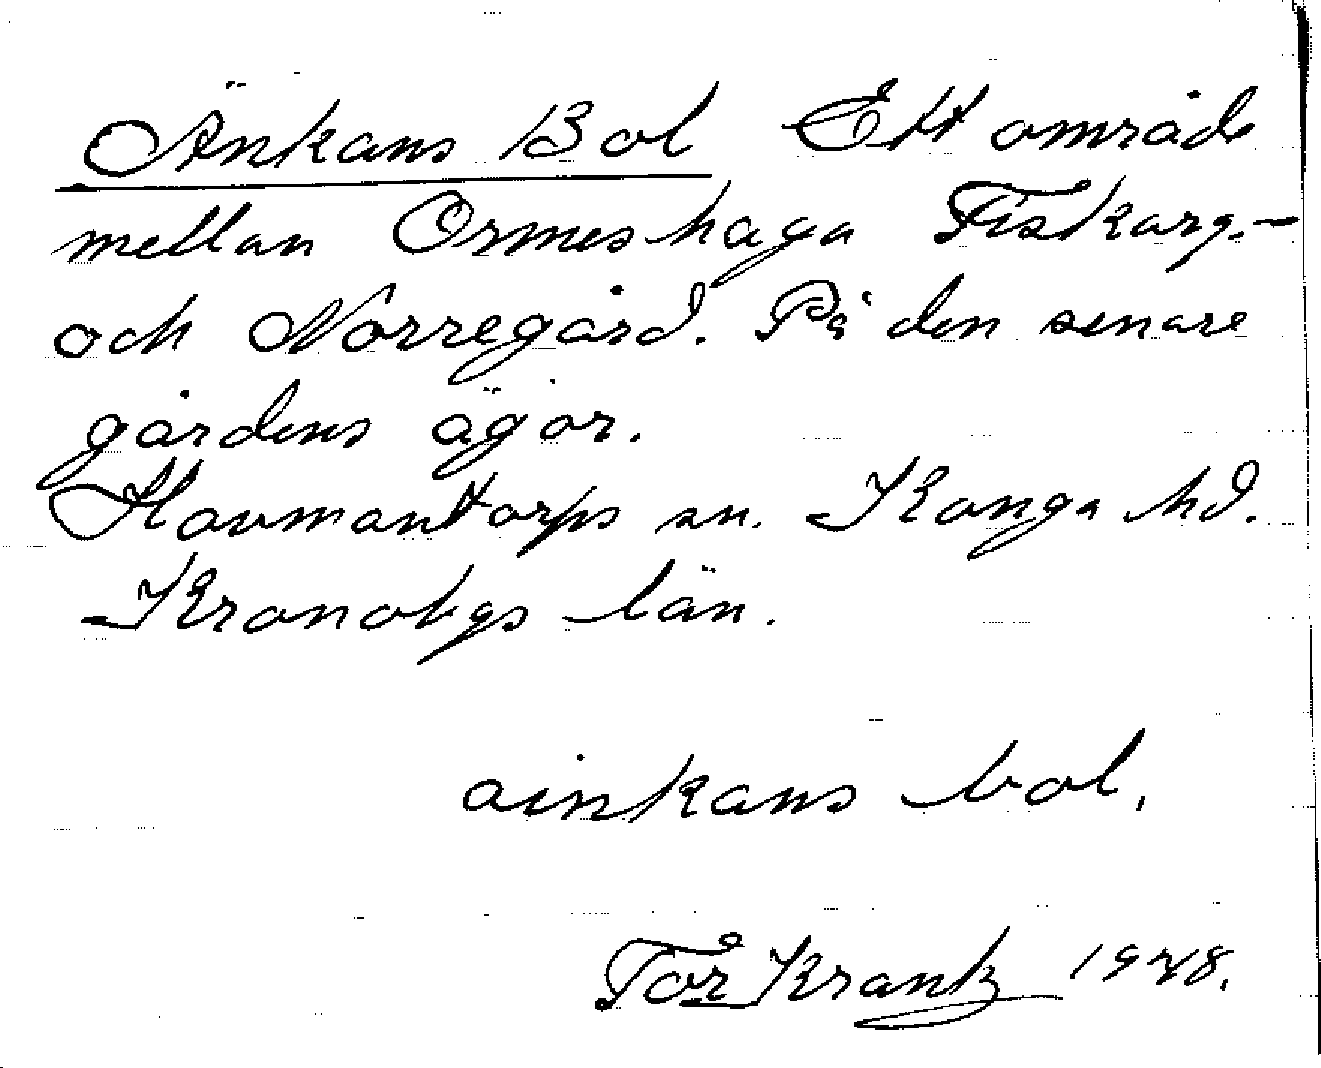 Änkans Bol Ett område
mellan Ormeshaga Fiskarg.-
och Norregård. På den senare
gårdens ägor.
Hovmantorps sn. Konga hd.
Kronobgs län.
ainkans bol.
Tor Krantz 1928.